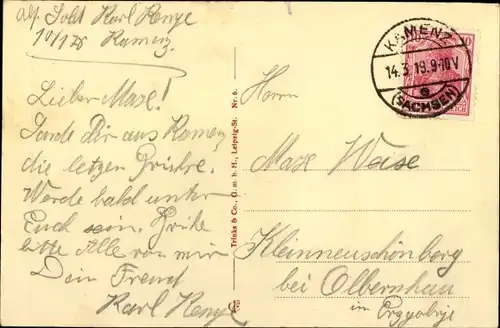 Karl Kenze
Kamenz.
KAMENZ
14.3.19.9-10V
(SACHSEN)
10
Lieber Max!
Sande Dir aus Kamenz
die letzen Grüße.
Werde bald unter
Euch sein. Grüße
bitte Alle von mir
Dein Freund
Karl
Trinks & Co., G. m. b. H., Leipzig-St. Nr. 6.
Herrn
Max Weise
Kleinneuschönberg
bei Olbernhau
im Erzgebirge